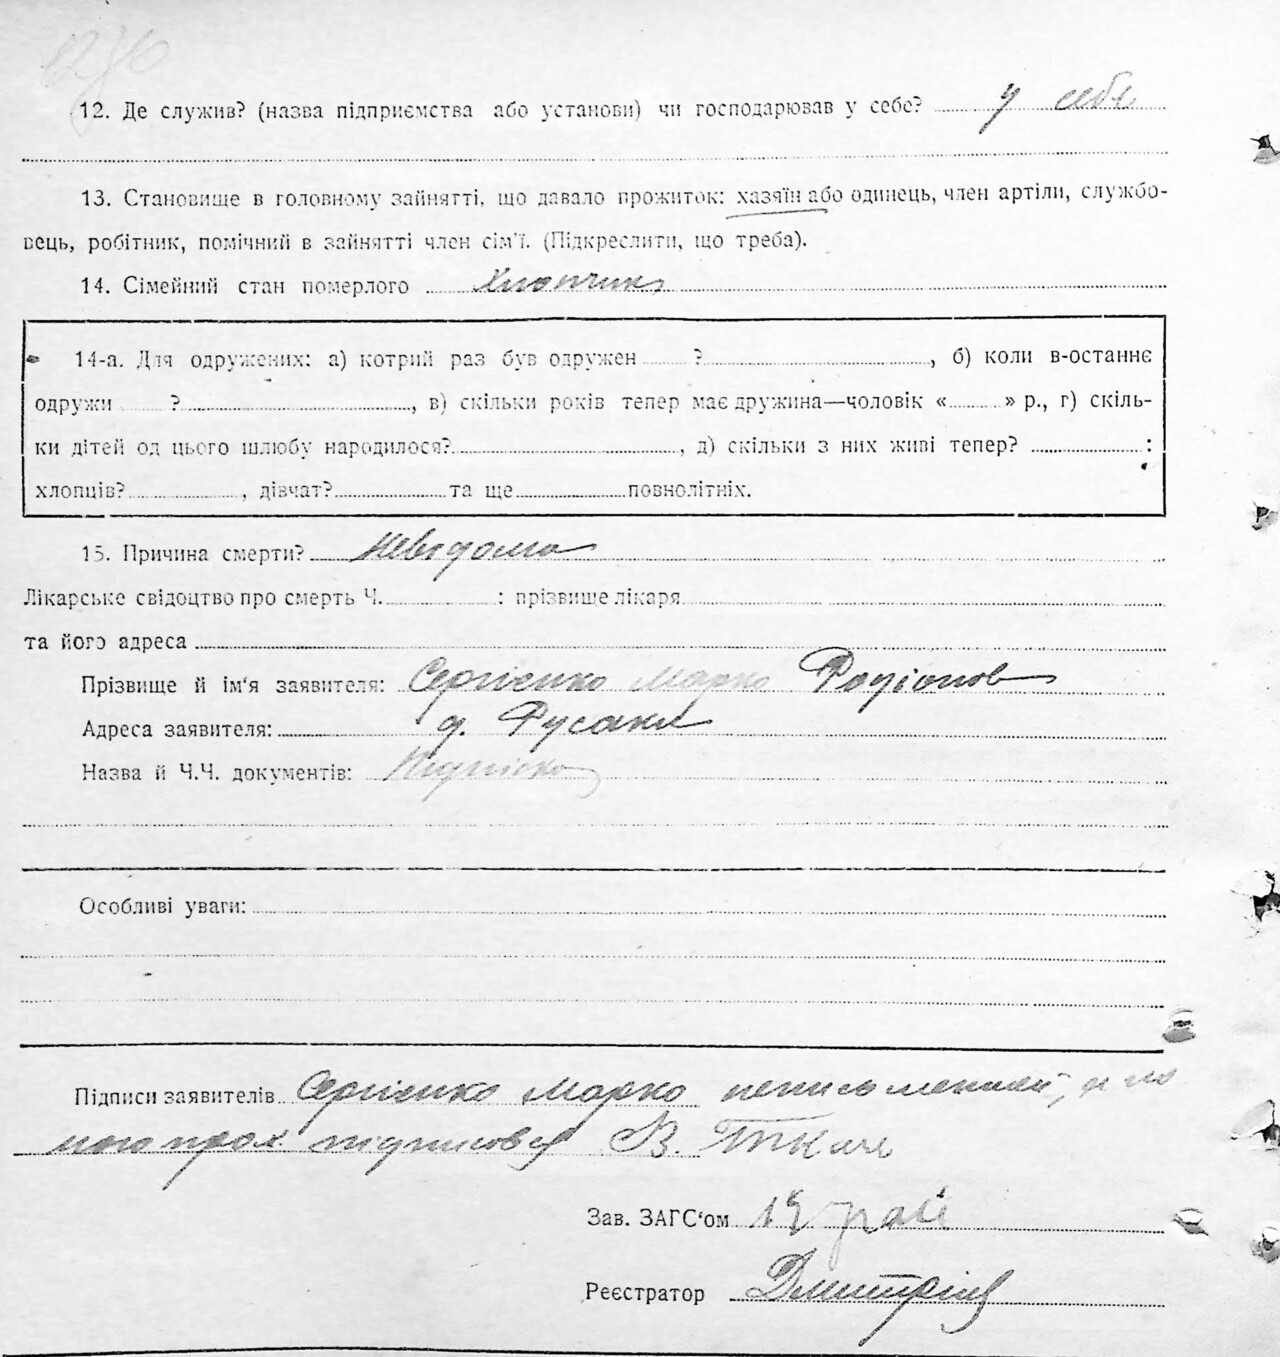 12. Де служив? (назва підприємства або установи) чи господарював у себе? у себе
13. Становище в головному зайнятті, що давало прожиток: хазяїн або одинець, член артіли, службо-
вець, робітник, помічний в зайнятті член сім'ї. (Підкреслити, що треба).
14. Сімейний стан померлого Хлопчик
14-а. Для одружених: а) котрий раз був одружен ? , б) коли в-останнє
одружи ? , в) скільки років тепер має дружина—чоловік « » р., г) скіль-
ки дітей од цього шлюбу народилося? , д) скільки з них живі тепер? :
хлопців? , дівчат? та ще повнолітніх.
15. Причина смерти? Невідома
Лікарське свідоцтво про смерть Ч. : прізвище лікаря
та його адреса
Прізвище й ім'я заявителя: Сергієнко Марко Родіонов
Адреса заявителя: д. Русаки
Назва й Ч.Ч. документів: Підписка
Особливі уваги:
Підписи заявителів Сергієнко Марко неписьменний, и по
його прох. підписовся В. Ткач
Зав. ЗАГС'ом
Реєстратор Дмитрієв